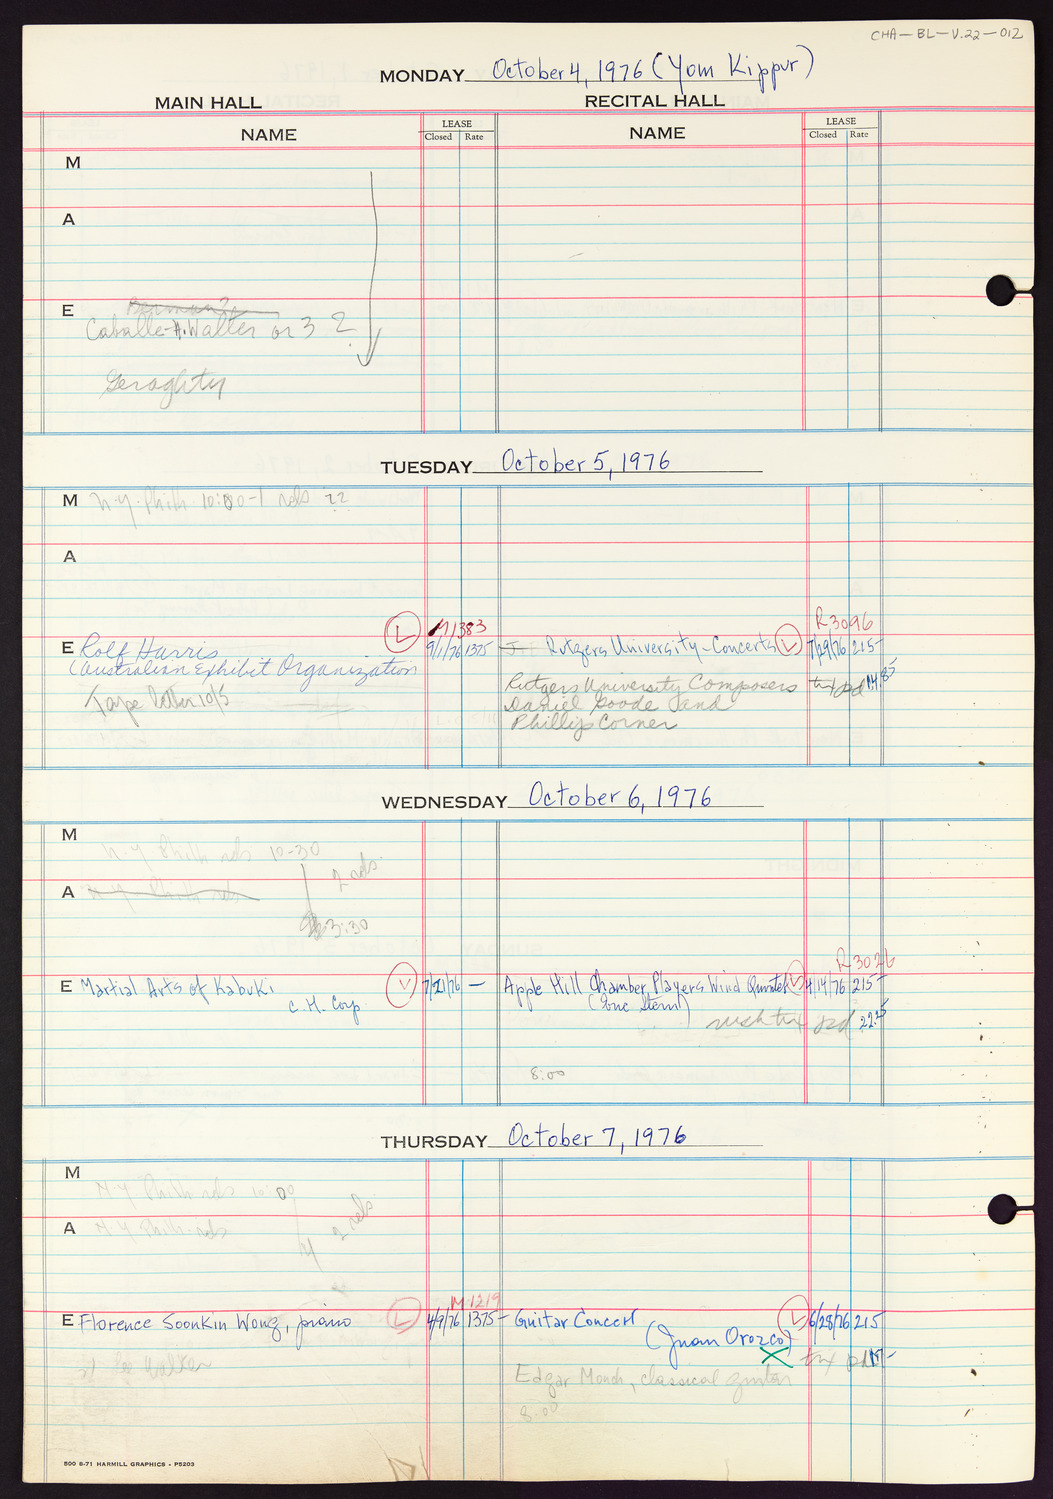 CHA-BL-V.22-012
MONDAY October 4, 1976 (Yom Kippur)
MAIN HALL RECITAL HALL
NAME LEASE Closed Rate NAME LEASE Closed Rate
M
A
E
Caballe-A. Walter or 3 ?
Geraghty
TUESDAY October 5, 1976
M N-Y-Phil 10:00-1 rds ??
A
L M1383 R3096
E Rolf Harris 9/1/76 1375 Rutgers University-Concerts L 7/29/76 215-
(Australian Exhibit Organization
Rutgers University Composers pd
Tape letter 10/5 Daniel Goode and
Phillip Corner
WEDNESDAY October 6, 1976
M N-Y Phil rds 10-30
2 rds
A N-Y Phil rds
3:30
R3026
E Martial Arts of Kabuki L 7/21/76 - Apple Hill Chamber Players Wind Quintet L 4/14/76 215-
C.H. Corp (Eric Stern)
pd
8:00
THURSDAY October 7, 1976
M N-Y Phil rds 10:00
2 rds
A N-Y Phil-rds
M1219
E Florence Soonkin Wong, piano L 4/9/76 1375- Guitar Concert L 6/28/76 215
(Juan Orozco)
Lee Walter
Edgar Monch, classical guitar
8:00
500 8-71 HARMILL GRAPHICS - P5203